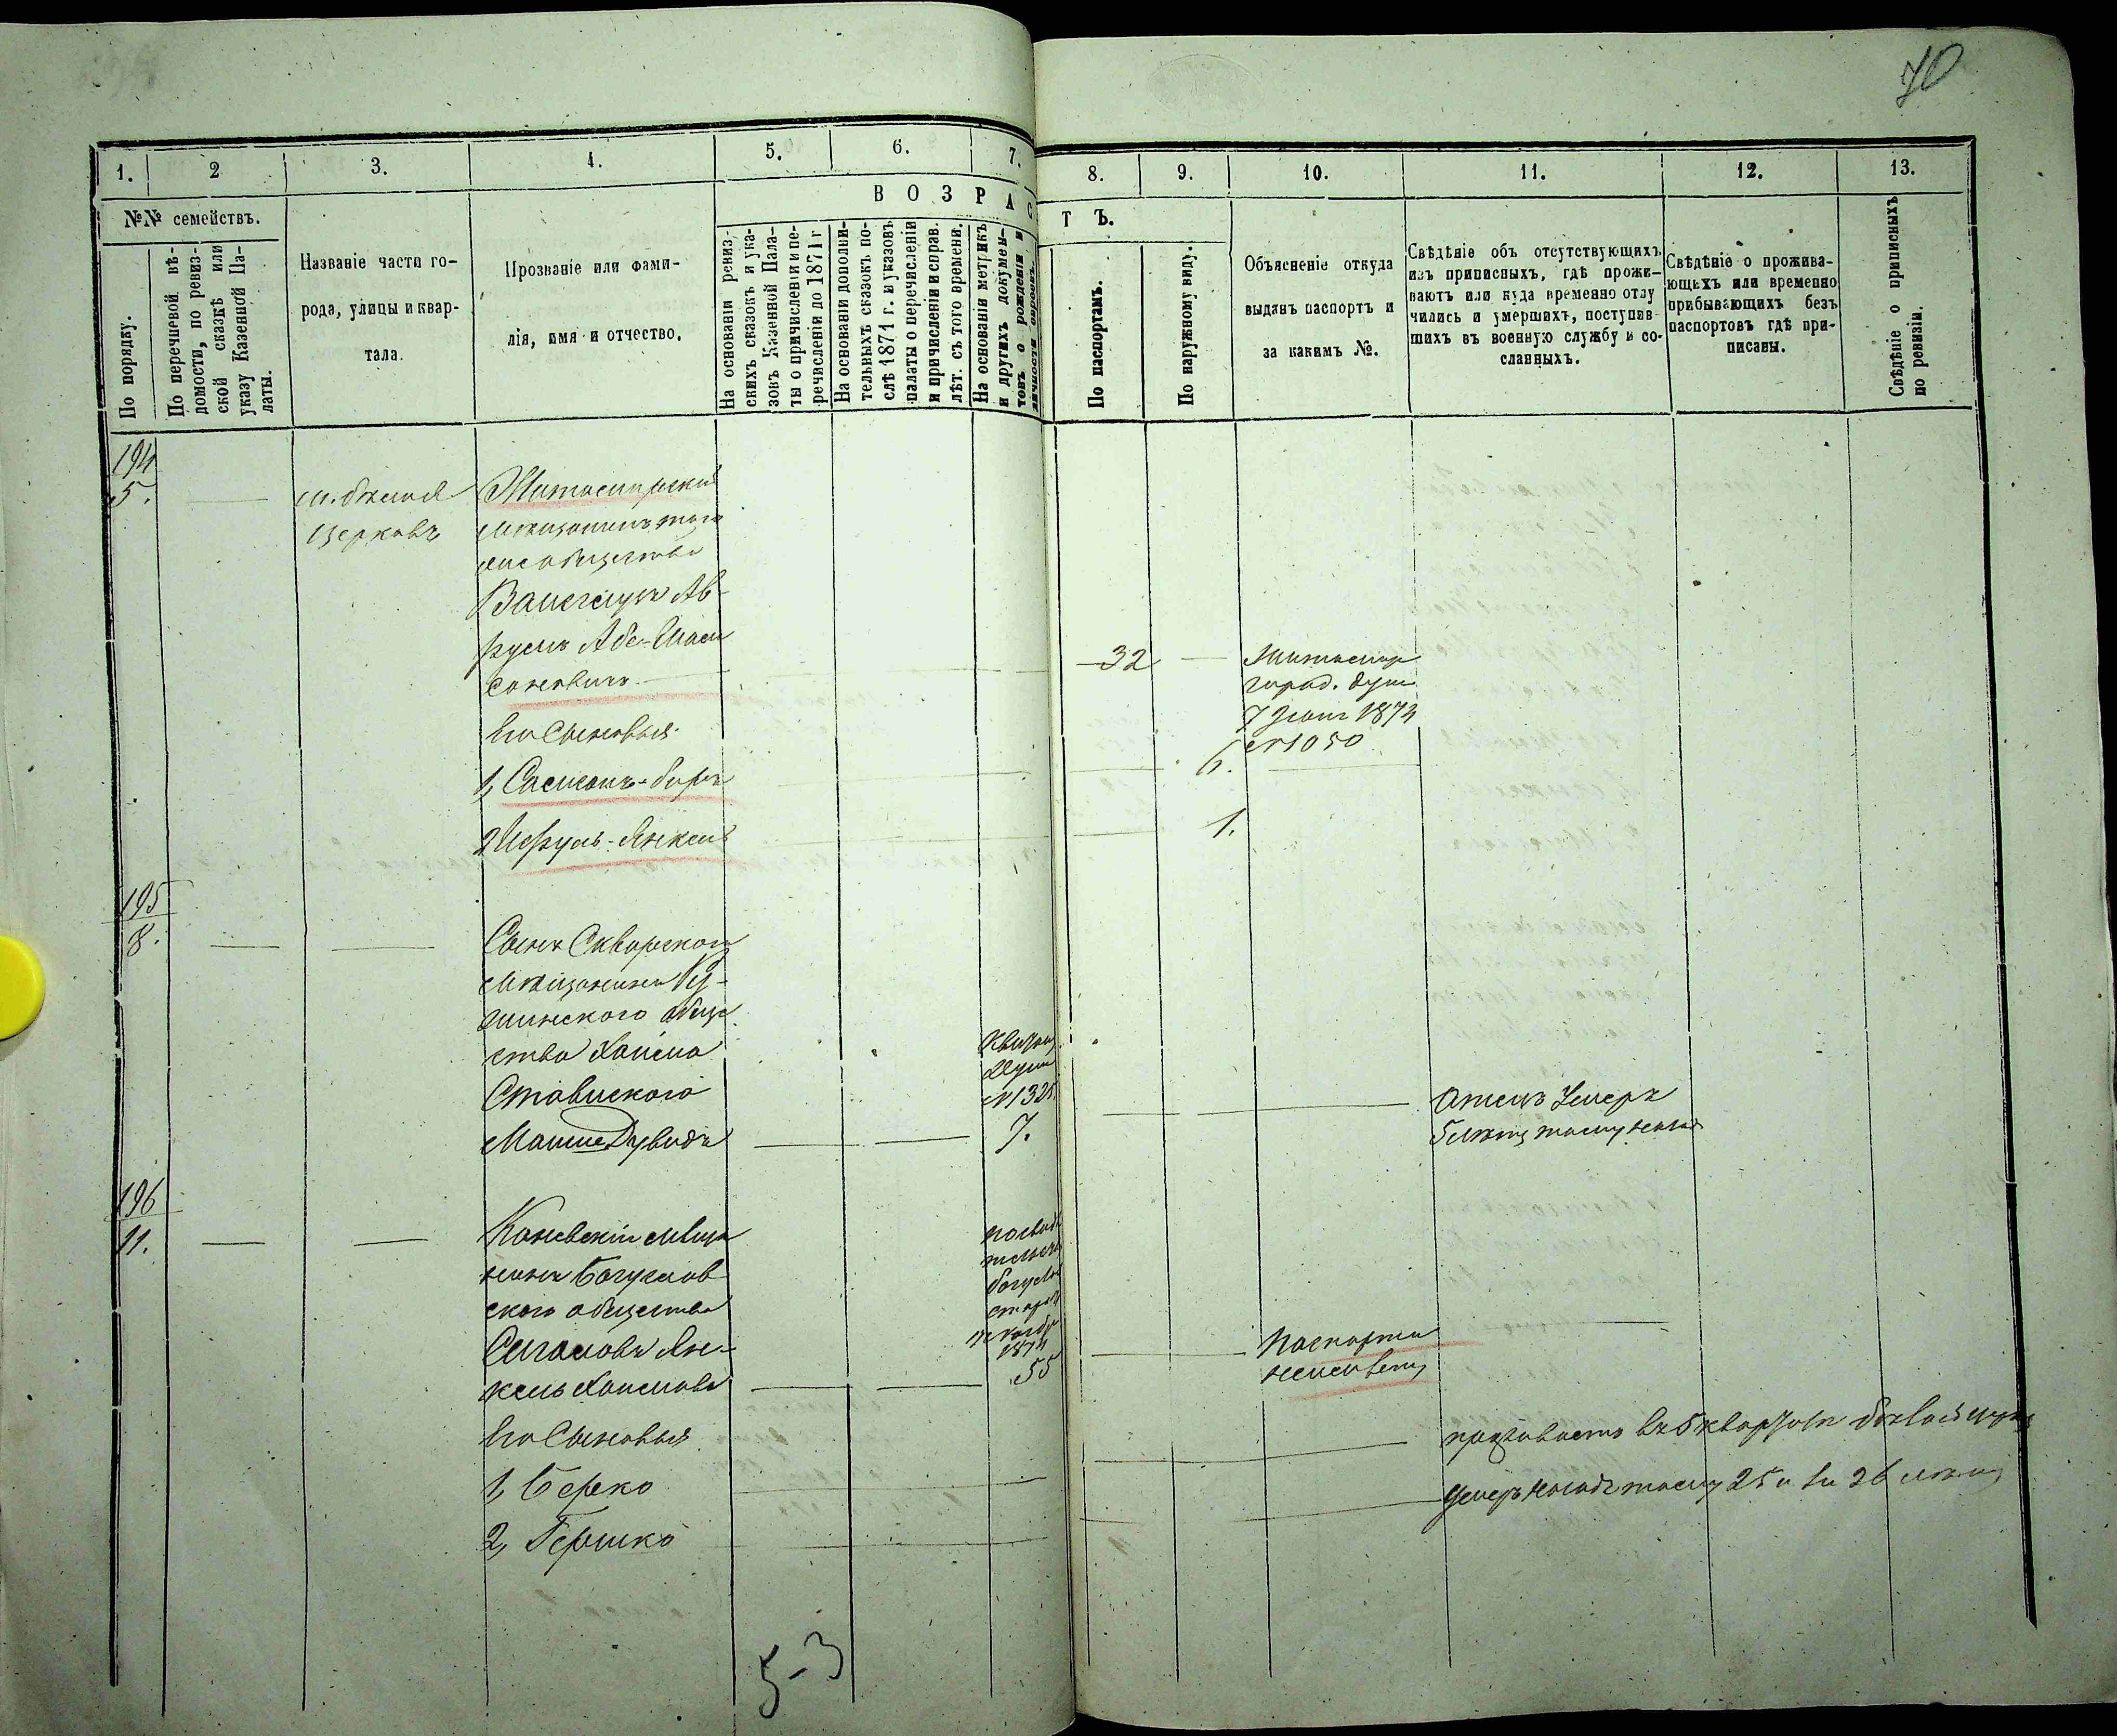 70
1. 2 3. 4. 5. 6. 7. 8. 9. 10. 11. 12. 13.
№№ семействъ.
По порядку.
По перечневой вѣ-
домости, по ревиз-
ской сказкѣ или
указу Казенной Па-
латы.
Названіе части го-
рода, улицы и квар-
тала.
Прозваніе или фами-
лія, имя и отчество.
ВОЗРАСТЪ.
На основаніи ревиз-
скихъ сказокъ и ука-
зовъ Казенной Пала-
ты о причисленіи и пе-
речисленіи до 1871 г
На основаніи дополни-
тельныхъ сказокъ по-
слѣ 1871 г. и указовъ
палаты о перечисленіи
и причисленіи и справ.
лѣт. съ того времени.
На основаніи метрикъ
и другихъ докумен-
товъ о рожденіи и
По паспортамъ.
По наружному виду.
Объясненіе откуда
выданъ паспортъ и
за какимъ №.
Свѣдѣніе объ отсутствующихъ
изъ приписныхъ, гдѣ прожи-
ваютъ или куда временно отлу
чились и умершихъ, поступив-
шихъ въ военную службу и со-
сланныхъ.
Свѣдѣніе о прожива-
ющихъ или временно
прибывающихъ безъ
паспортовъ гдѣ при-
писаны.
Свѣдѣніе о приписныхъ
по ревизіи.
194
5.
м. Бѣлая
Церковь
Житомирскій
мѣщанинъ того
же общества
Ав
румъ Абе-
соновичъ
32
Житомир
город. Дум
7 1874
№ 1050
Его Сыновья
1, 6.
2, Янкель 1.
195
8.
Сынъ Сквирского
мѣщанина
общe
ства Хаима
Ставиского
Мошие Дувидъ
№ 1325
7.
Отецъ Умеръ
196
11.
Каневскій мѣща
нинъ Богуслав
ского общества
Ян-
кель Хаимовъ
1874
55
Паспорта
неимѣетъ
Его Сыновья
1, Берко
проживаетъ въ 5 кварталѣ
2, Гершко
Умеръ 25
5-3